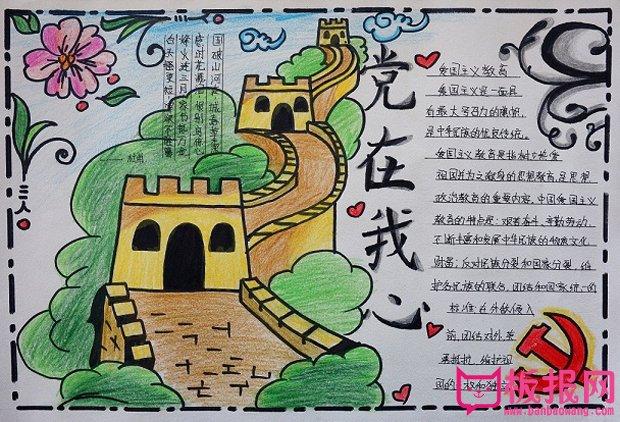 国破山河在城春草木深
感时花溅泪恨别鸟惊心
烽火连三月家书抵万金
白头搔更短浑欲不胜簪
——杜甫
党在我心
爱国主义教育
爱国主义是一面具
有最大号召力的旗帜,
是中华民族的优良传统。
爱国主义教育是指树立热爱
祖国并为之献身的思想教育,是思想
政治教育的重要内容,中国爱国主义
教育的特点是:艰苦奋斗、辛勤劳动,
不断丰富和发展中华民族的物质文化
财富;反对民族分裂和国家分裂,维
护各民族的联合、团结和国家统一的
标准;在外敌侵入
前,团结对外,英
勇抵抗,维护祖
国的 权和独
板报网
www.banbaowang.com